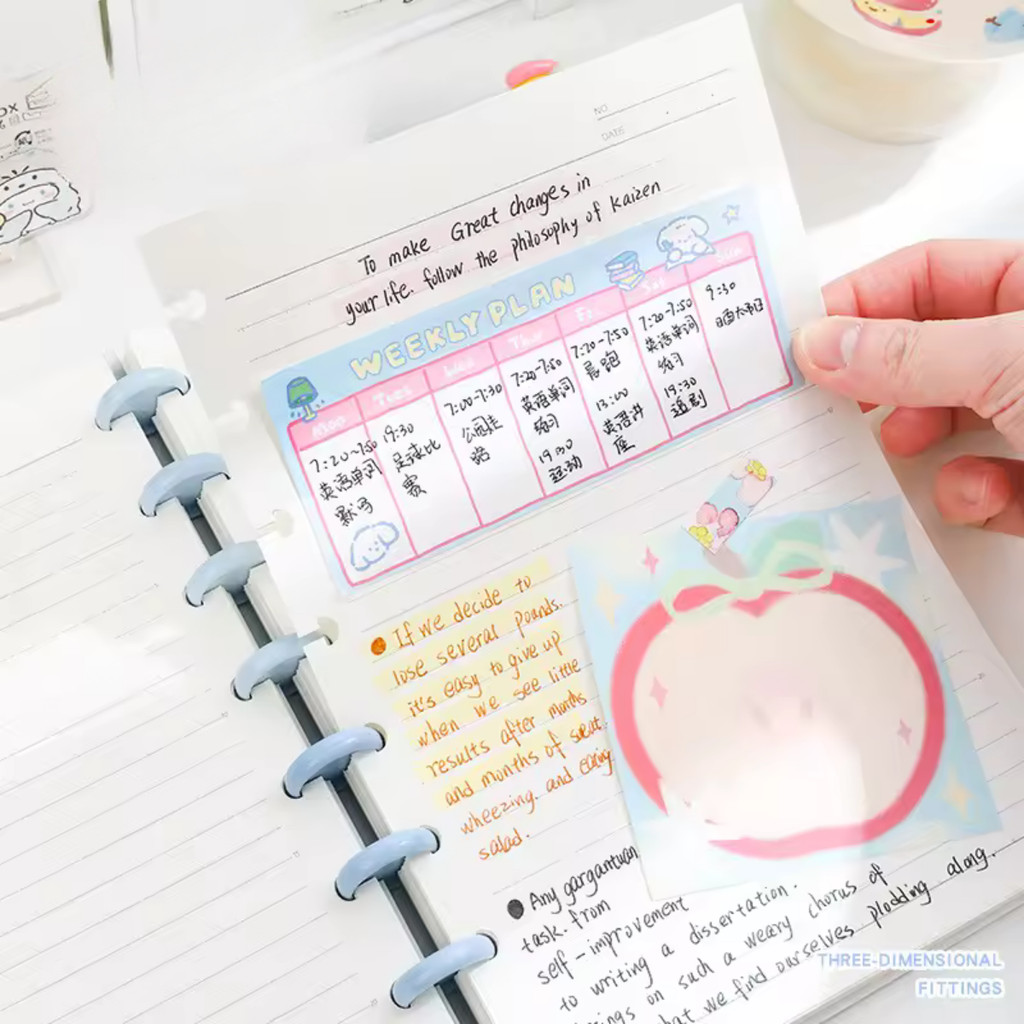 NO.
DATE
To make Great changes in
your life. follow the philosophy of kaizen
WEEKLY PLAN
Mon Tues Wed Thur Fri Sat Sun
7:20~7:50
英语单词
默写
19:30
足球比
赛
7:00-7:30
公园走
路
7:20-7:50
英语单词
练习
19:30
运动
7:20-7:50
晨跑
13:00
英语讲
座
7:20-7:50
英语单词
练习
19:30
追剧
9:30
If we decide to
lose several pounds.
it's easy to give up
when we see little
results after months
and months of sweat
wheezing. and eating
salad.
Any gargantuan
task. from
self-improvement
to writing a dissertation.
on such a weary chorus of
we find ourselves plodding along.
THREE-DIMENSIONAL
FITTINGS